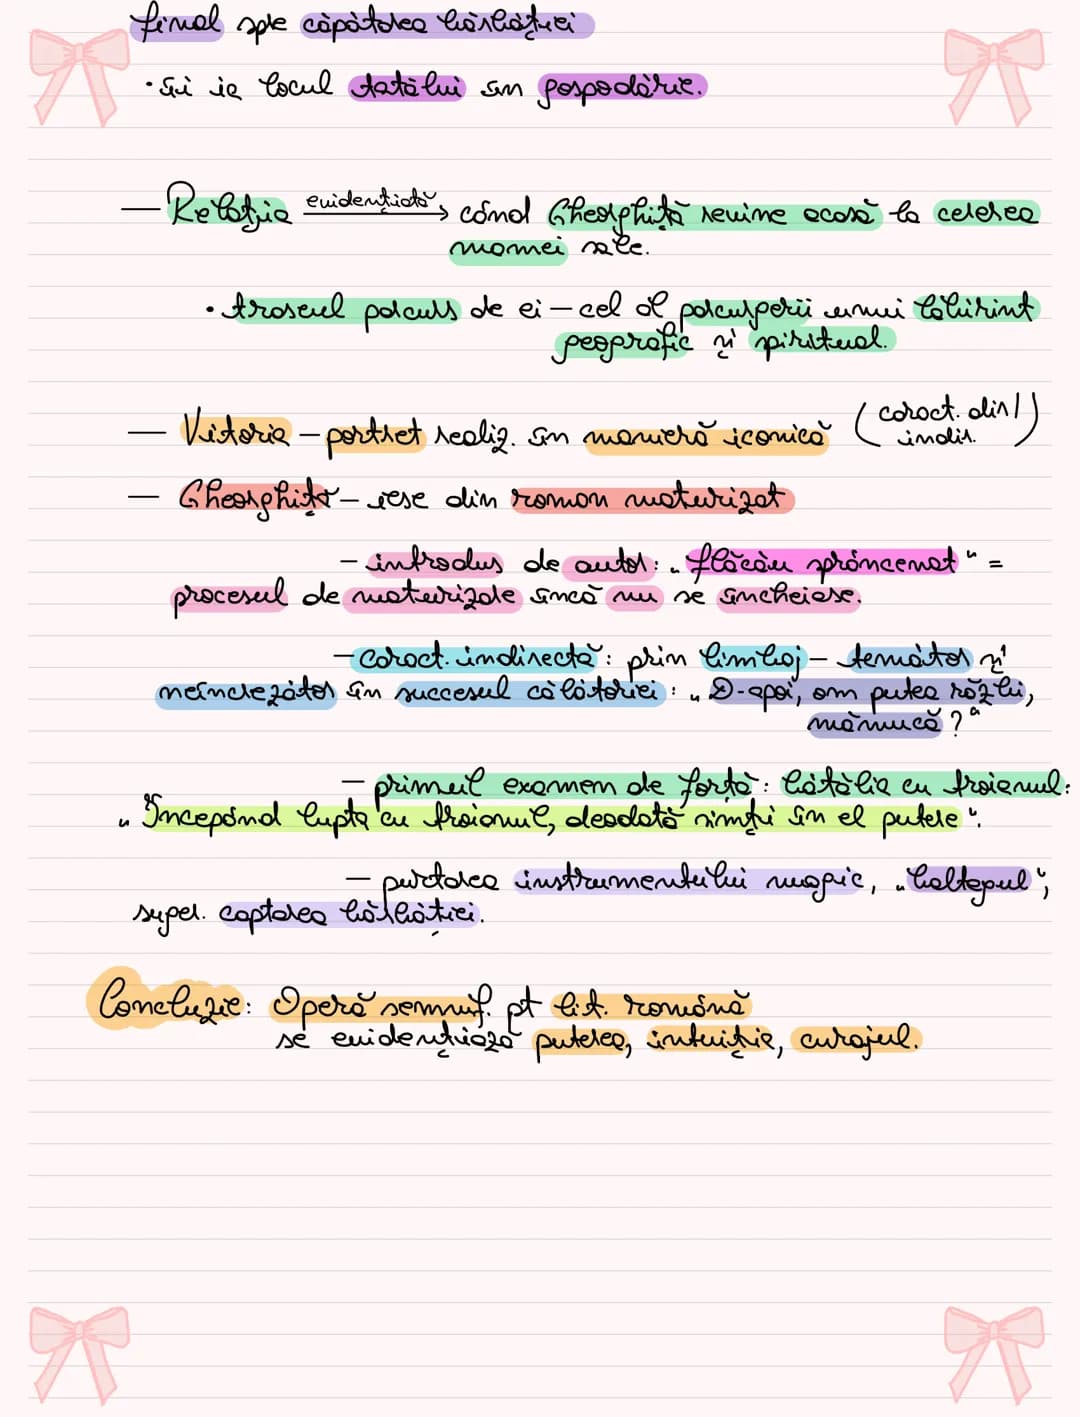 final spre căpătarea bărbăției
• Îi ia locul tatălui în gospodărie.
— Relația evidențiată → când Gheorghiță revine acasă la cererea
mamei sale.
• traseul parcurs de ei – cel al parcurgerii unui labirint
geografic și spiritual.
— Vitoria – portret realiz. în manieră iconică (caract. dir/
indir.)
— Gheorghiță – iese din roman maturizat
– introdus de autor: „flăcău sprâncenat" =
procesul de maturizare încă nu se încheiase.
– caract. indirectă: prin limbaj – temător și
neîncrezător în succesul călătoriei: „D-apoi, om putea răzbi,
mămucă?"
– primul examen de forță: bătălia cu troianul:
„Începând lupta cu troianul, deodată simți în el putere".
– purtarea instrumentului magic, „baltagul";
suger. captarea bărbăției.
Concluzie: Operă semnif. pt lit. română
se evidențiază puterea, intuiția, curajul.